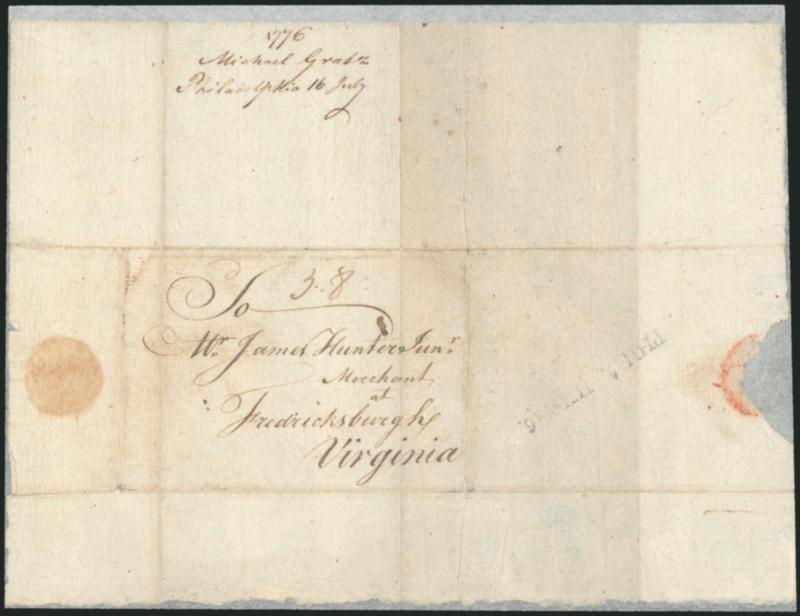 1776
Michael Gratz
Philadelphia 16 July
To 3.8
Mr. James Hunter Junr.
Merchant
at
Fredricksburgh
Virginia